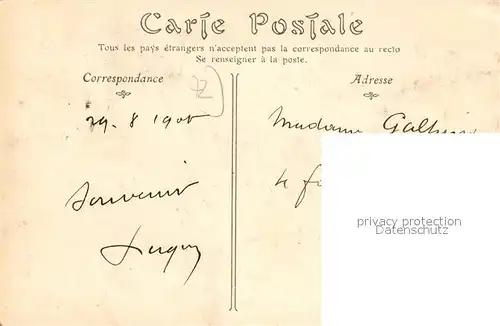 Carte Postale
Tous les pays étrangers n'acceptent pas la correspondance au recto
Se renseigner à la poste.
Correspondance
Adresse
72
29.8 190
Madame
Souvenir
privacy protection
Datenschutz